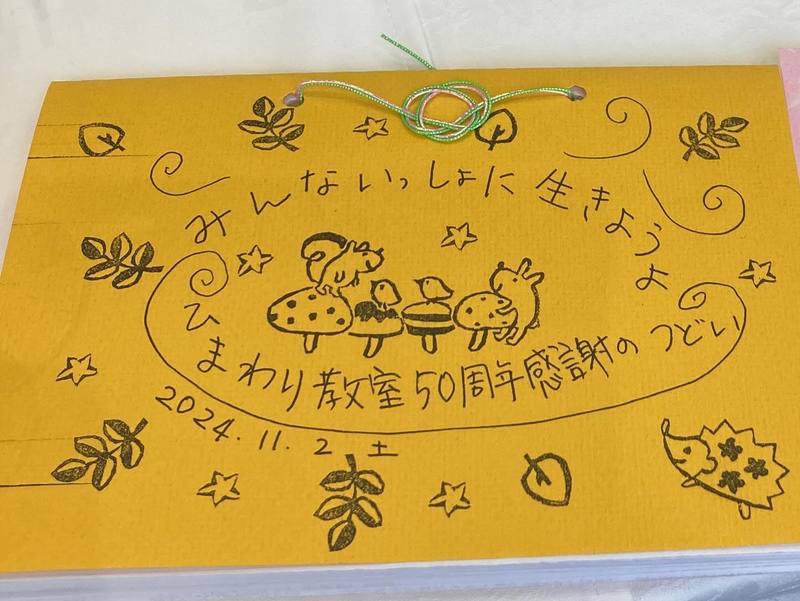 みんないっしょに生きようよ
ひまわり教室50周年感謝のつどい
2024.11.2 土